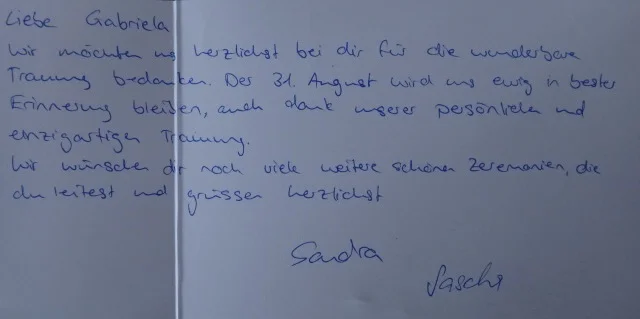 Liebe Gabriela
Wir möchten uns herzlichst bei dir für die wunderbare
Trauung bedanken. Der 31. August wird uns ewig in bester
Erinnerung bleiben, auch dank unserer persönlichen und
einzigartigen Trauung.
Wir wünschen dir noch viele weitere schöne Zeremonien, die
du leitest und grüssen herzlichst
Sandra
Sascha